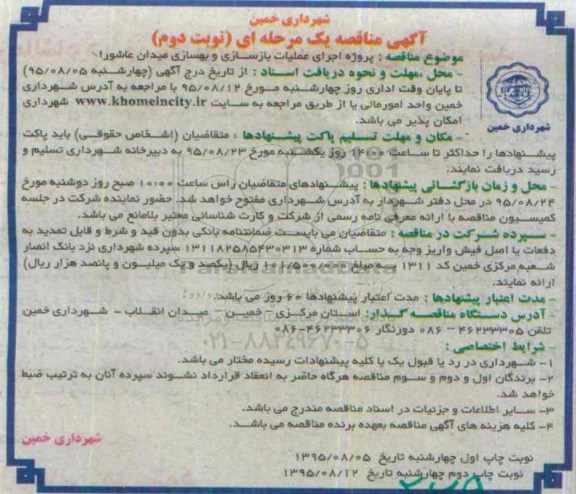 شهرداری خمین
آگهی مناقصه یک مرحله ای (نوبت دوم)
موضوع مناقصه : پروژه اجرای عملیات بازسازی و بهسازی میدان عاشورا
- محل ،مهلت و نحوه دریافت اسناد : از تاریخ درج آگهی (چهارشنبه ۹۵/۰۸/۰۵)
تا پایان وقت اداری روز چهارشنبه مورخ ۹۵/۰۸/۱۲ با مراجعه به آدرس شهرداری
خمین واحد امورمالی یا از طریق مراجعه به سایت www.khomeincity.ir شهرداری
امکان پذیر می باشد.
شهرداری خمین
- مکان و مهلت تسلیم پاکت پیشنهادها : متقاضیان (اشخاص حقوقی) باید پاکت
پیشنهادها را حداکثر تا ساعت ۱۴:۰۰ روز یکشنبه مورخ ۹۵/۰۸/۲۳ به دبیرخانه شهرداری تسلیم و
رسید دریافت نمایند.
- محل و زمان بازگشائی پیشنهادها : پیشنهادهای متقاضیان راس ساعت ۱۰:۰۰ صبح روز دوشنبه مورخ
۹۵/۰۸/۲۴ در محل دفتر شهردار به آدرس شهرداری مفتوح خواهد شد. حضور نماینده شرکت در جلسه
کمیسیون مناقصه با ارائه معرفی نامه رسمی از شرکت و کارت شناسائی معتبر بلامانع می باشد.
- سپرده شرکت در مناقصه : متقاضیان می بایست ضمانتنامه بانکی بدون قید و شرط و قابل تمدید به
دفعات یا اصل فیش واریز وجه به حساب شماره ۱۳۱۱۸۲۵۸۵۴۳۰۳۱۳ سپرده شهرداری نزد بانک انصار
شعبه مرکزی خمین کد ۱۳۱۱ به مبلغ ریال (یکصد و یک میلیون و پانصد هزار ریال)
ارائه نمایند.
- مدت اعتبار پیشنهادها : مدت اعتبار پیشنهادها ۶۰ روز می باشد.
- آدرس دستگاه مناقصه گذار: استان مرکزی - خمین - میدان انقلاب - شهرداری خمین
تلفن ۴۶۲۳۳۳۰۵ - ۰۸۶ دورنگار ۴۶۲۳۳۳۰۶-۰۸۶
- شرایط اختصاصی :
۱- شهرداری در رد یا قبول یک یا کلیه پیشنهادات رسیده مختار می باشد.
۲- برندگان اول و دوم و سوم مناقصه هرگاه حاضر به انعقاد قرارداد نشوند سپرده آنان به ترتیب ضبط
خواهد شد.
۳- سایر اطلاعات و جزئیات در اسناد مناقصه مندرج می باشد.
۴- کلیه هزینه های آگهی مناقصه بعهده برنده مناقصه می باشد.
شهرداری خمین
نوبت چاپ اول چهارشنبه تاریخ ۱۳۹۵/۰۸/۰۵
نوبت چاپ دوم چهارشنبه تاریخ ۱۳۹۵/۰۸/۱۲